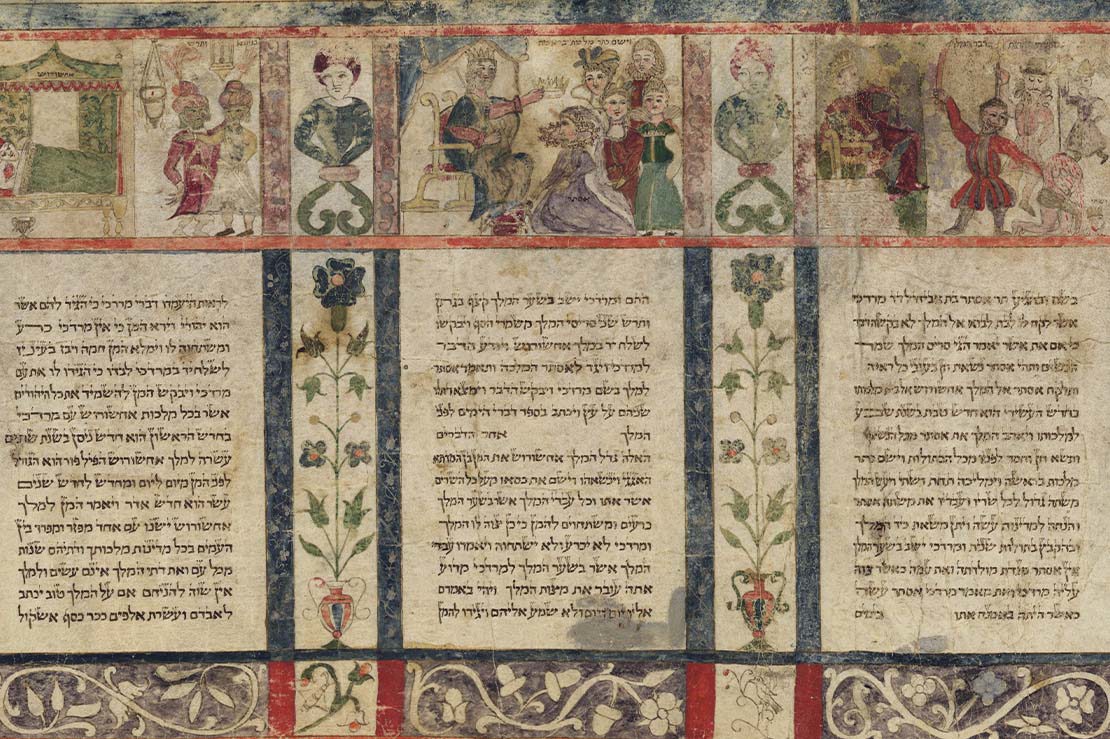 וישם כתר מלכות בראשה
אסתר
אחשורוש
בשם ובהגיע תר אסתר בת אביחיל דד מרדכי
אשר לקח לו לבת לבוא אל המלך לא בקשה דבר
כי אם את אשר יאמר הגי סריס המלך שמר
הנשים ותהי אסתר נשאת חן בעיני כל ראיה
ותלקח אסתר אל המלך אחשורוש אל בית מלכותו
בחדש העשירי הוא חדש טבת בשנת שבע
למלכותו ויאהב המלך את אסתר מכל הנשים
ותשא חן וחסד לפניו מכל הבתולות וישם כתר
מלכות בראשה וימליכה תחת ושתי ויעש המלך
משתה גדול לכל שריו ועבדיו את משתה אסתר
והנחה למדינות עשה ויתן משאת כיד המלך
ובהקבץ בתולות שנית ומרדכי ישב בשער המלך
אין אסתר מגדת מולדתה ואת עמה כאשר צוה
עליה מרדכי ואת מאמר מרדכי אסתר עשה
כאשר היתה באמנה אתו בימים
ההם ומרדכי ישב בשער המלך קצף בגתן
ותרש שני סריסי המלך משמרי הסף ויבקשו
לשלח יד במלך אחשורוש ויודע הדבר
למרדכי ויגד לאסתר המלכה ותאמר אסתר
למלך בשם מרדכי ויבקש הדבר וימצא ויתלו
שניהם על עץ ויכתב בספר דברי הימים לפני
המלך אחר הדברים
האלה גדל המלך אחשורוש את המן בן המדתא
האגגי וינשאהו וישם את כסאו מעל כל השרים
אשר אתו וכל עבדי המלך אשר בשער המלך
כרעים ומשתחוים להמן כי כן צוה לו המלך
ומרדכי לא יכרע ולא ישתחוה ויאמרו עבדי
המלך אשר בשער המלך למרדכי מדוע
אתה עובר את מצות המלך ויהי באמרם
אליו יום ויום ולא שמע אליהם ויגידו להמן
לראות היעמדו דברי מרדכי כי הגיד להם אשר
הוא יהודי וירא המן כי אין מרדכי כרע
ומשתחוה לו וימלא המן חמה ויבז בעיניו
לשלח יד במרדכי לבדו כי הגידו לו את עם
מרדכי ויבקש המן להשמיד את כל היהודים
אשר בכל מלכות אחשורוש עם מרדכי
בחדש הראשון הוא חדש ניסן בשנת שתים
עשרה למלך אחשורוש הפיל פור הוא הגורל
לפני המן מיום ליום ומחדש לחדש שנים
עשר הוא חדש אדר ויאמר המן למלך
אחשורוש ישנו עם אחד מפזר ומפרד בין
העמים בכל מדינות מלכותך ודתיהם שנות
מכל עם ואת דתי המלך אינם עשים ולמלך
אין שוה להניחם אם על המלך טוב יכתב
לאבדם ועשרת אלפים ככר כסף אשקול